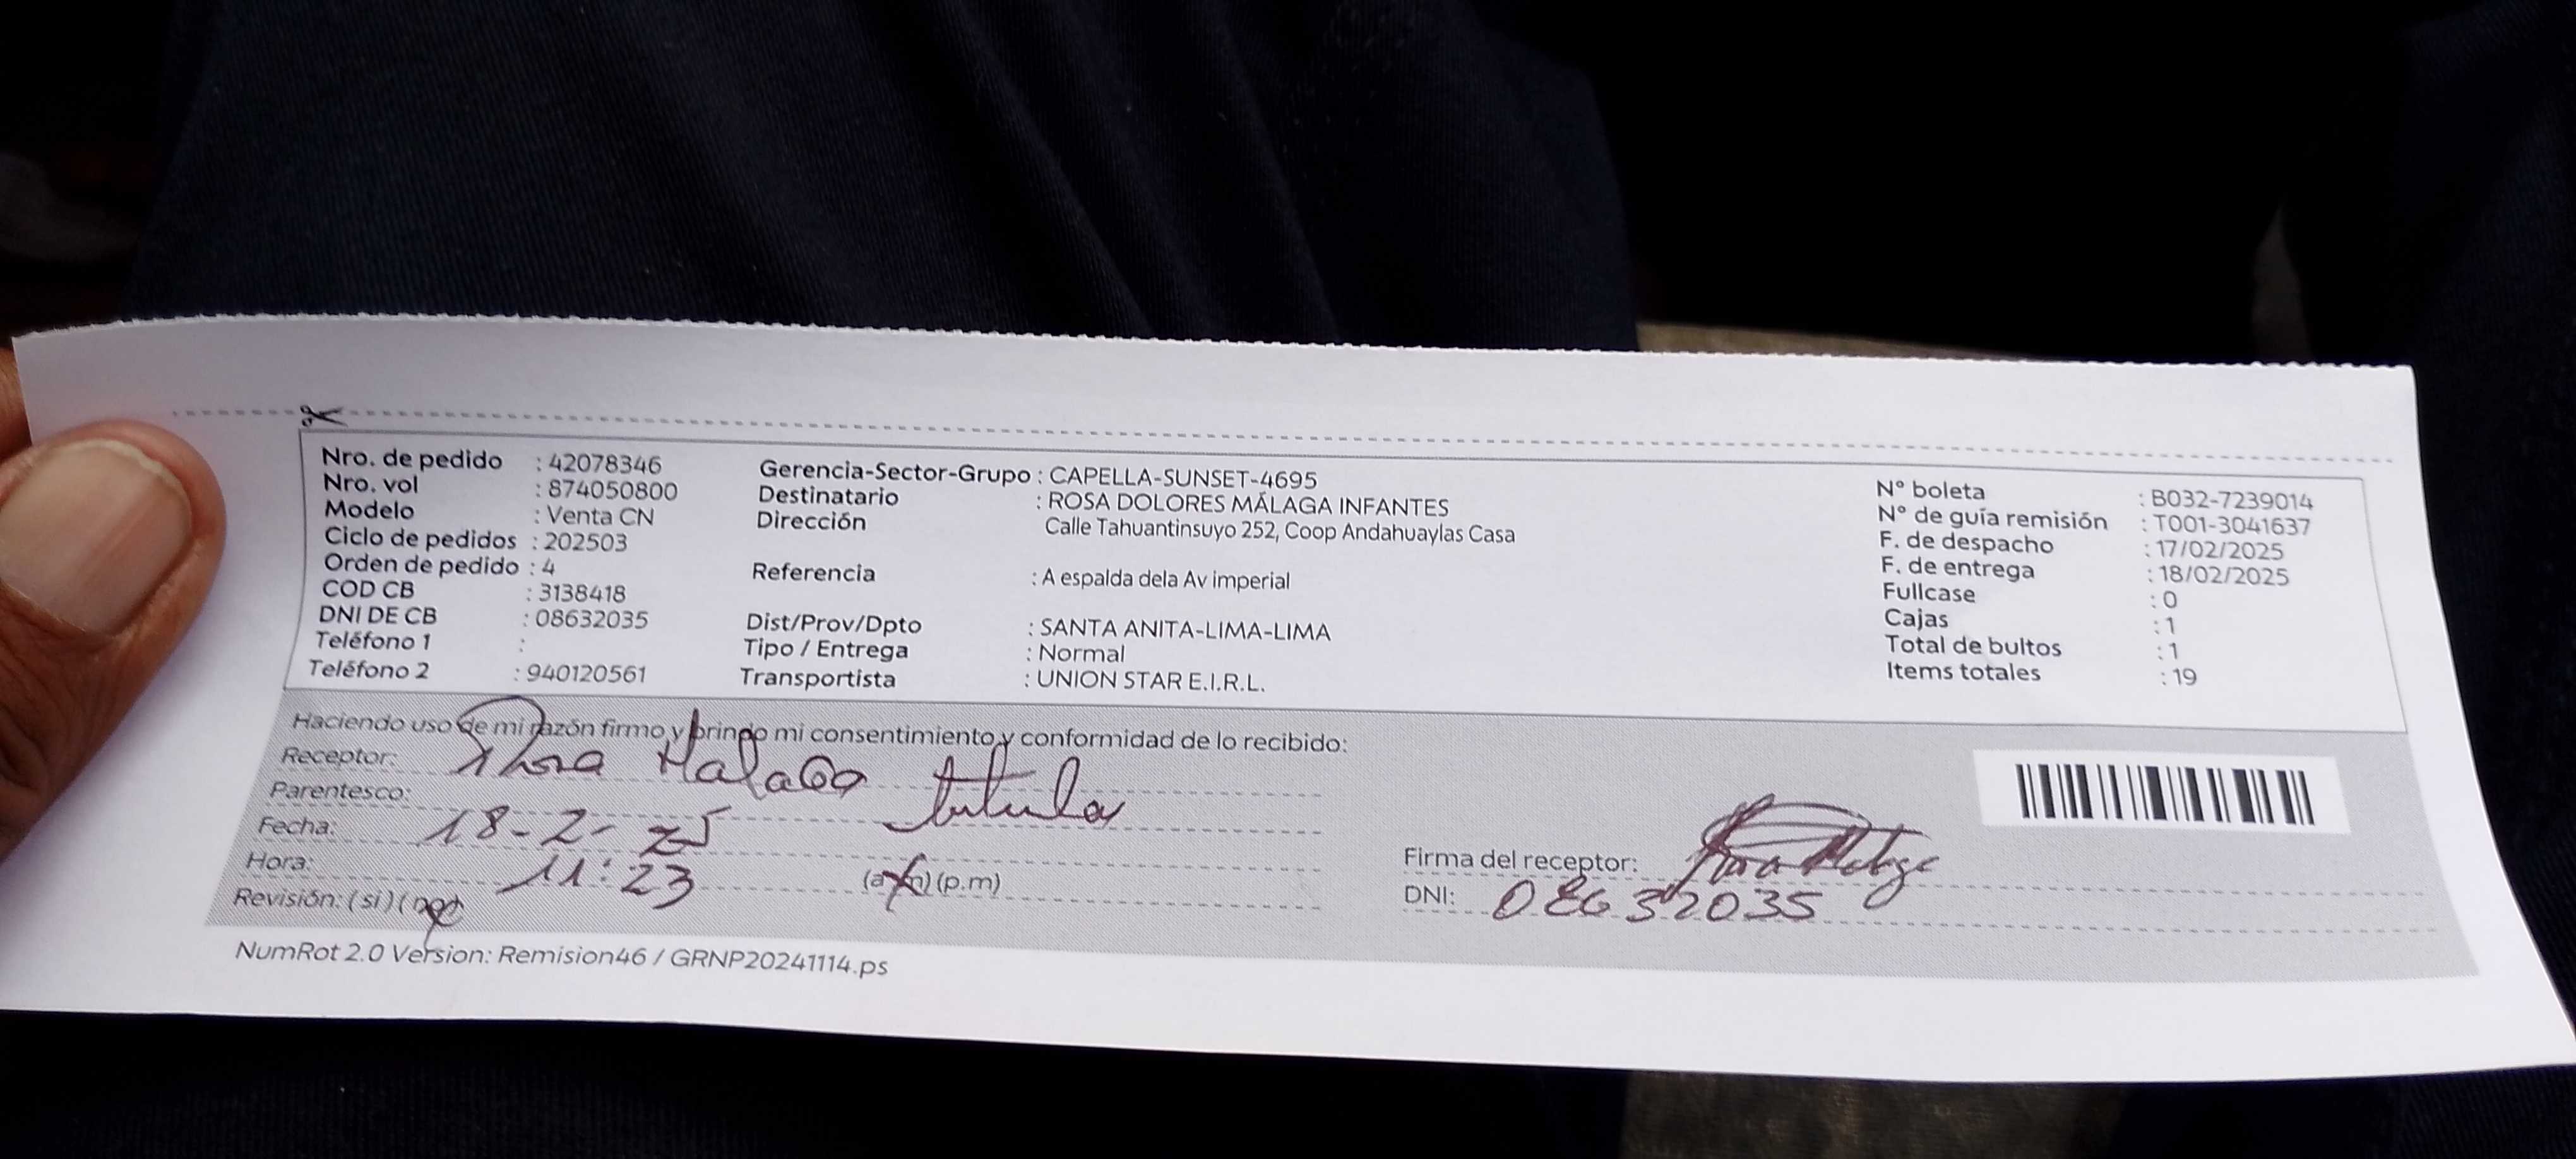 Nro. de pedido : 42078346
Nro. vol : 874050800
Modelo : Venta CN
Ciclo de pedidos : 202503
Orden de pedido : 4
COD CB : 3138418
DNI DE CB : 08632035
Teléfono 1 :
Teléfono 2 : 940120561
Gerencia-Sector-Grupo : CAPELLA-SUNSET-4695
Destinatario : ROSA DOLORES MÁLAGA INFANTES
Dirección Calle Tahuantinsuyo 252, Coop Andahuaylas Casa
Referencia : A espalda dela Av imperial
Dist/Prov/Dpto : SANTA ANITA-LIMA-LIMA
Tipo / Entrega : Normal
Transportista : UNION STAR E.I.R.L.
N° boleta : B032-7239014
N° de guía remisión : T001-3041637
F. de despacho : 17/02/2025
F. de entrega : 18/02/2025
Fullcase : 0
Cajas : 1
Total de bultos : 1
Items totales : 19
Haciendo uso de mi razón firmo y brindo mi consentimiento y conformidad de lo recibido:
Receptor: Rosa Malaga
Parentesco: titular
Fecha: 18-2-25
Hora: 11:23 (a.m) (p.m)
Revisión: (si) (no)
Firma del receptor:
DNI: 08632035
NumRot 2.0 Version: Remision46 / GRNP20241114.ps